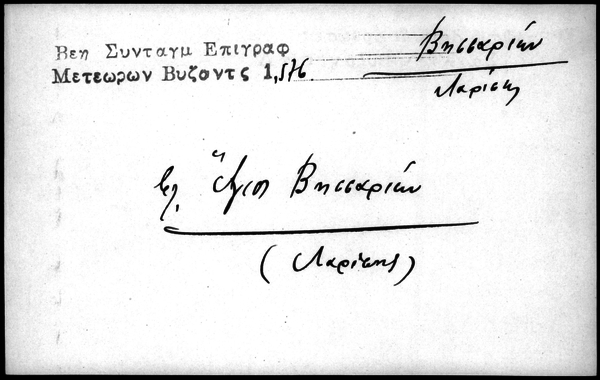 Βεη Συνταγμ Επιγραφ
Μετεωρων Βυζαντς 1,576.
Βησσαριών
Λαρίσης
βλ. Ἅγιος Βησσαρίων
(Λαρίσης)